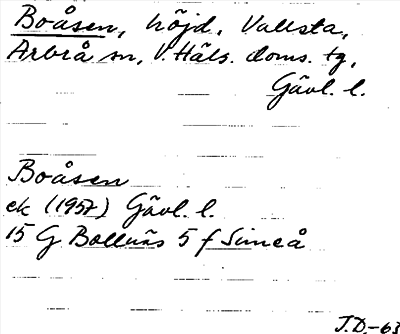 Boåsen, höjd, Vallsta,
Arbrå sn, V. Häls. doms. tg,
Gävl. l.
Boåsen
ek (1957) Gävl. l.
15 G Bollnäs 5 f Simeå
J.D.-63